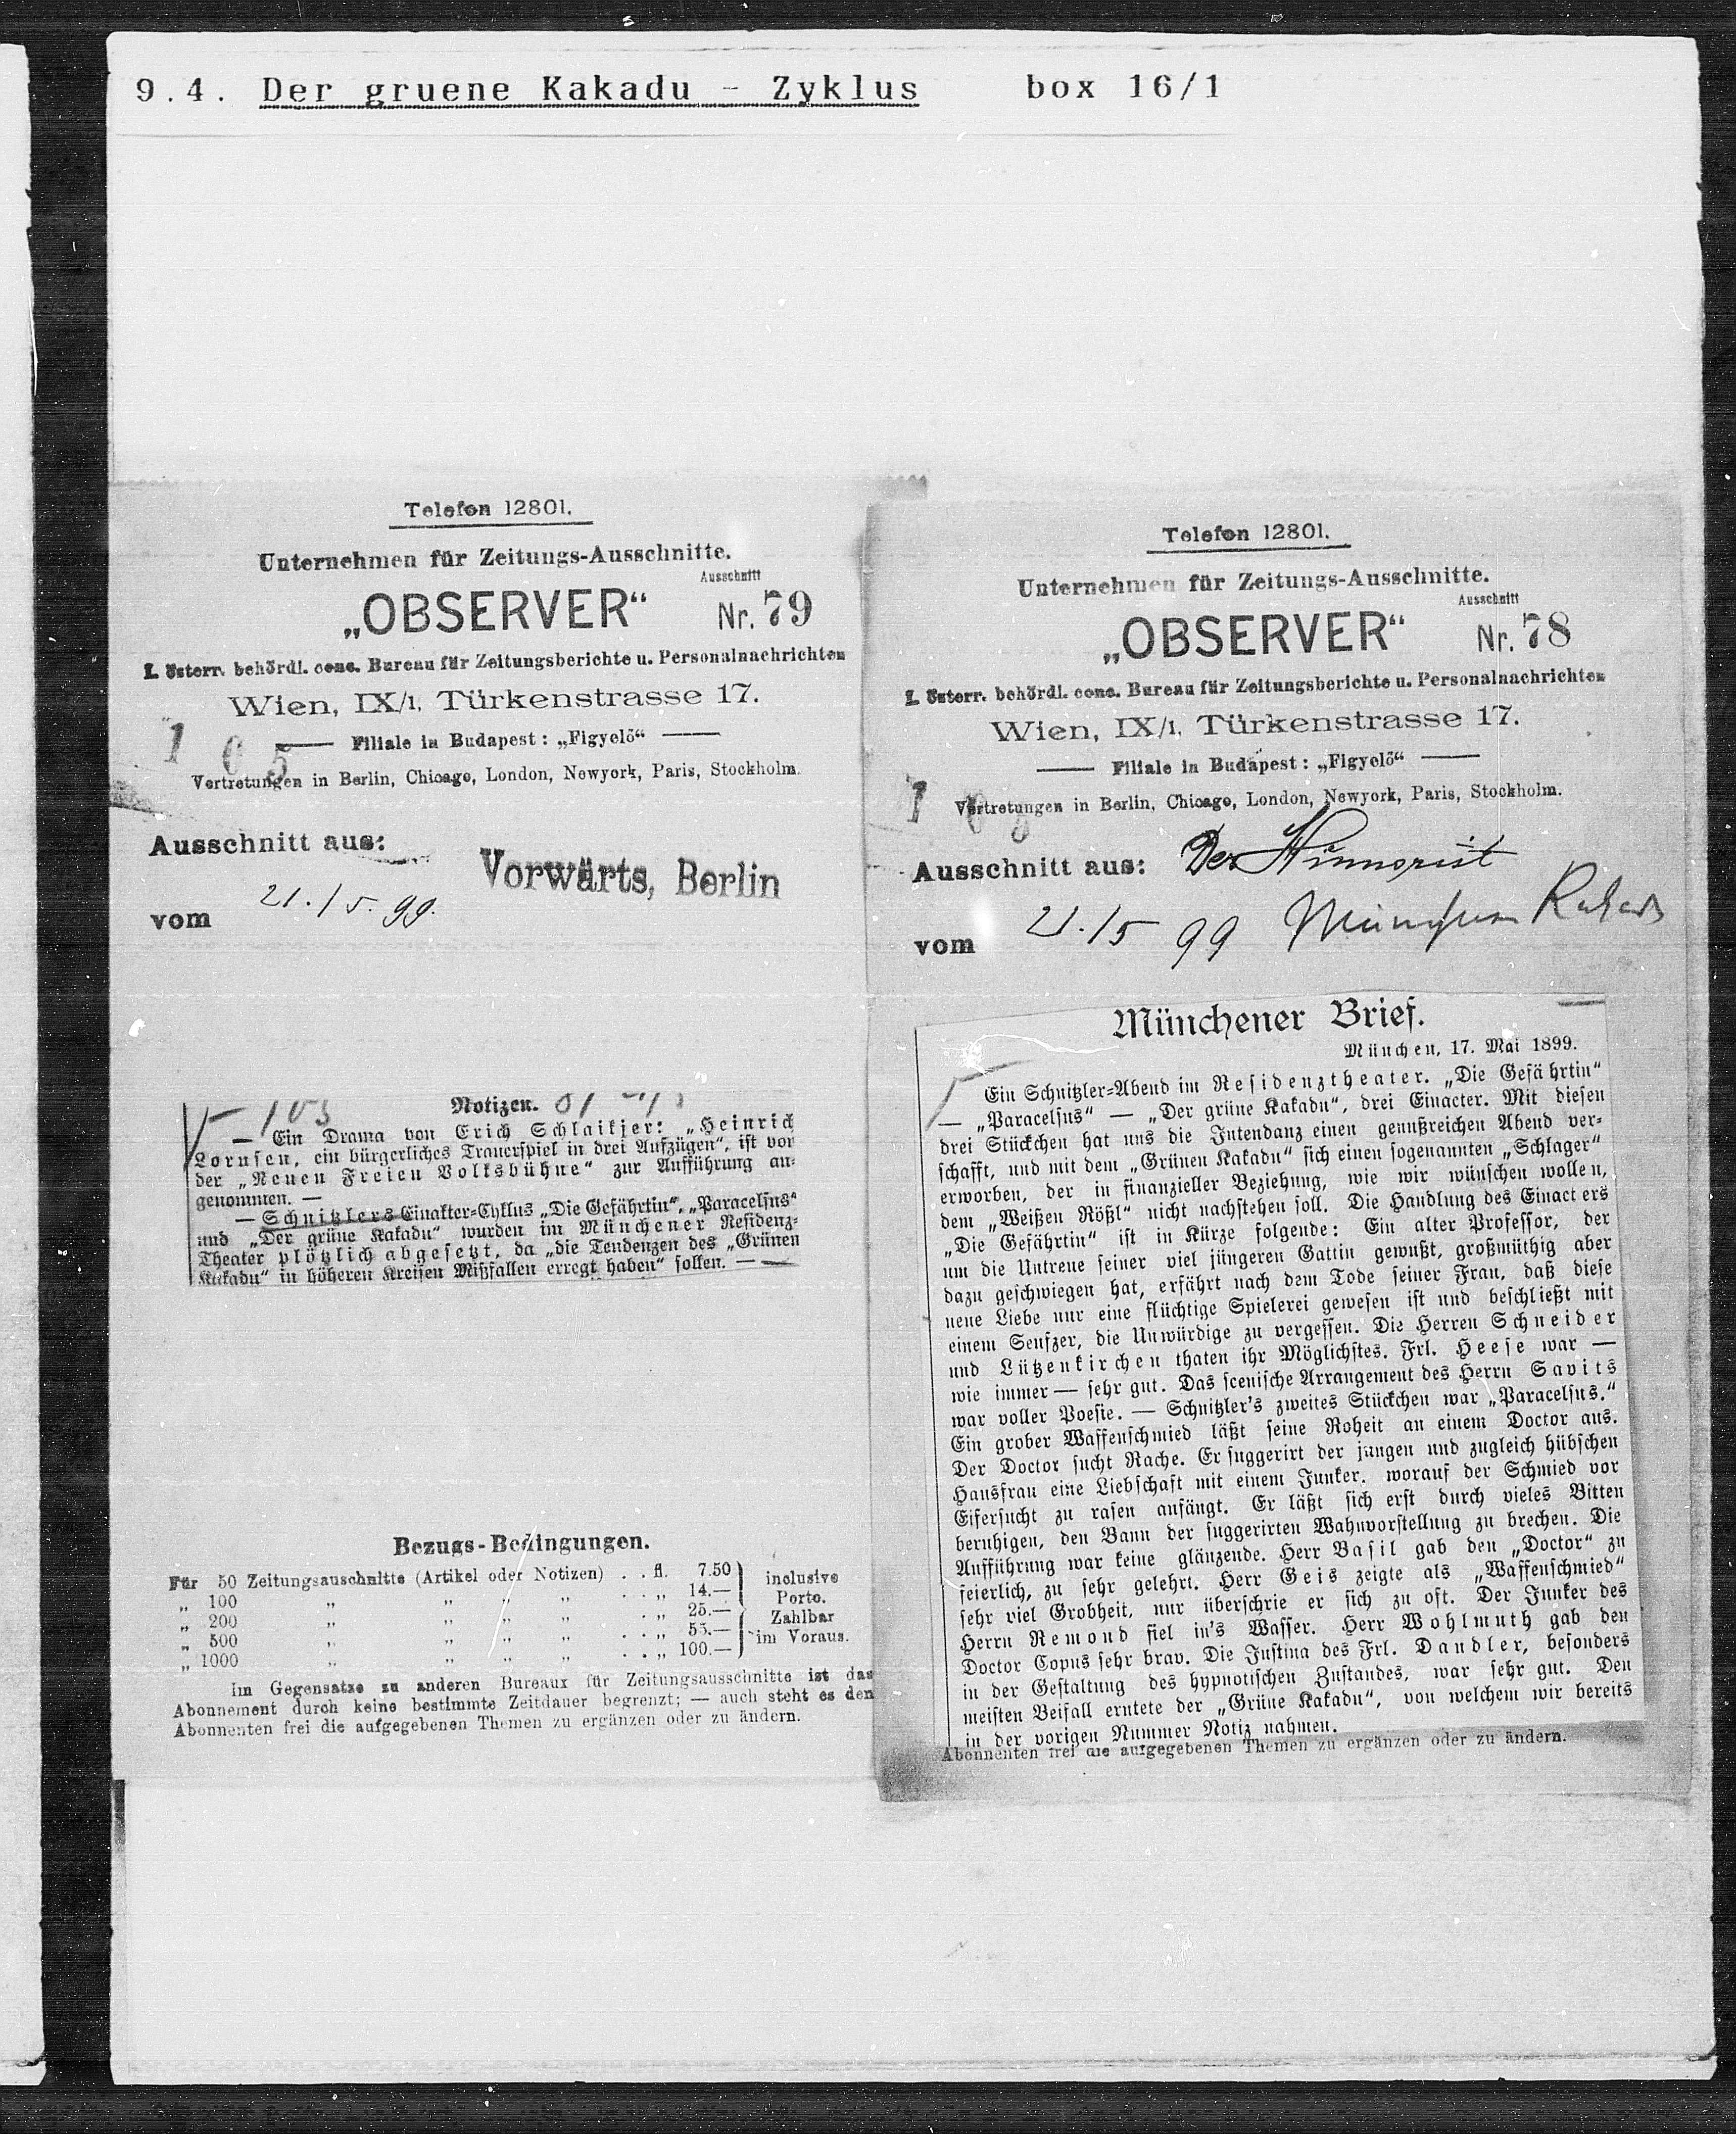 9.4. Der gruene Kakadu - Zyklus box 16/1
Telefon 12801.
Unternehmen für Zeitungs-Ausschnitte.
Ausschnitt
„OBSERVER“ Nr. 79
I. österr. behördl. conc. Bureau für Zeitungsberichte u. Personalnachrichten
Wien, IX/1, Türkenstrasse 17.
Filiale in Budapest: „Figyelő“
105
Vertretungen in Berlin, Chicago, London, Newyork, Paris, Stockholm.
Ausschnitt aus:
Vorwärts, Berlin
vom 21./5. 99.
103
Notizen.
— Ein Drama von Erich Schlaikjer: „Heinrich
Lornsen, ein bürgerliches Trauerspiel in drei Aufzügen“, ist von
der „Neuen Freien Volksbühne“ zur Aufführung an-
genommen. —
— Schnitzlers Einakter-Cyklus „Die Gefährtin“, „Paracelsus“
und „Der grüne Kakadu“ wurden im Münchener Residenz-
Theater plötzlich abgesetzt, da „die Tendenzen des „Grünen
Kakadu“ in höheren Kreisen Mißfallen erregt haben“ sollen. —
Bezugs-Bedingungen.
Für 50 Zeitungsauschnitte (Artikel oder Notizen) . . fl. 7.50 inclusive
„ 100 „ „ „ „ . . „ 14.— Porto.
„ 200 „ „ „ „ . „ 25.— Zahlbar
„ 500 „ „ „ „ . . „ 55.— im Voraus.
„ 1000 „ „ „ „ . . „ 100.—
Im Gegensatze zu anderen Bureaux für Zeitungsausschnitte ist das
Abonnement durch keine bestimmte Zeitdauer begrenzt; — auch steht es den
Abonnenten frei die aufgegebenen Themen zu ergänzen oder zu ändern.
Telefon 12801.
Unternehmen für Zeitungs-Ausschnitte.
Ausschnitt
„OBSERVER“ Nr. 78
I. österr. behördl. conc. Bureau für Zeitungsberichte u. Personalnachrichten
Wien, IX/1, Türkenstrasse 17.
Filiale in Budapest: „Figyelő“
Vertretungen in Berlin, Chicago, London, Newyork, Paris, Stockholm.
Ausschnitt aus: Der Humorist
vom 21./5 99 München Kakadu
Münchener Brief.
München, 17. Mai 1899.
Ein Schnitzler-Abend im Residenztheater. „Die Gefährtin“
— „Paracelsus“ — „Der grüne Kakadu“, drei Einacter. Mit diesen
drei Stückchen hat uns die Intendanz einen genußreichen Abend ver-
schafft, und mit dem „Grünen Kakadu“ sich einen sogenannten „Schlager“
erworben, der in finanzieller Beziehung, wie wir wünschen wollen,
dem „Weißen Rößl“ nicht nachstehen soll. Die Handlung des Einacters
„Die Gefährtin“ ist in Kürze folgende: Ein alter Professor, der
um die Untreue seiner viel jüngeren Gattin gewußt, großmüthig aber
dazu geschwiegen hat, erfährt nach dem Tode seiner Frau, daß diese
neue Liebe nur eine flüchtige Spielerei gewesen ist und beschließt mit
einem Seufzer, die Unwürdige zu vergessen. Die Herren Schneider
und Lützenkirchen thaten ihr Möglichstes. Frl. Heese war —
wie immer — sehr gut. Das scenische Arrangement des Herrn Savits
war voller Poesie. — Schnitzler's zweites Stückchen war „Paracelsus.“
Ein grober Waffenschmied läßt seine Roheit an einem Doctor aus.
Der Doctor sucht Rache. Er suggerirt der jungen und zugleich hübschen
Hausfrau eine Liebschaft mit einem Junker, worauf der Schmied vor
Eifersucht zu rasen anfängt. Er läßt sich erst durch vieles Bitten
beruhigen, den Bann der suggerirten Wahnvorstellung zu brechen. Die
Aufführung war keine glänzende. Herr Basil gab den „Doctor“ zu
feierlich, zu sehr gelehrt. Herr Geis zeigte als „Waffenschmied“
sehr viel Grobheit, nur überschrie er sich zu oft. Der Junker des
Herrn Remond fiel in's Wasser. Herr Wohlmuth gab den
Doctor Copus sehr brav. Die Justina des Frl. Dandler, besonders
in der Gestaltung des hypnotischen Zustandes, war sehr gut. Den
meisten Beifall erntete der „Grüne Kakadu“, von welchem wir bereits
in der vorigen Nummer Notiz nahmen.
Abonnenten frei die aufgegebenen Themen zu ergänzen oder zu ändern.